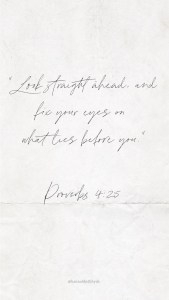 "Look straight ahead, and
fix your eyes on
what lies before you"
Proverbs 4:25